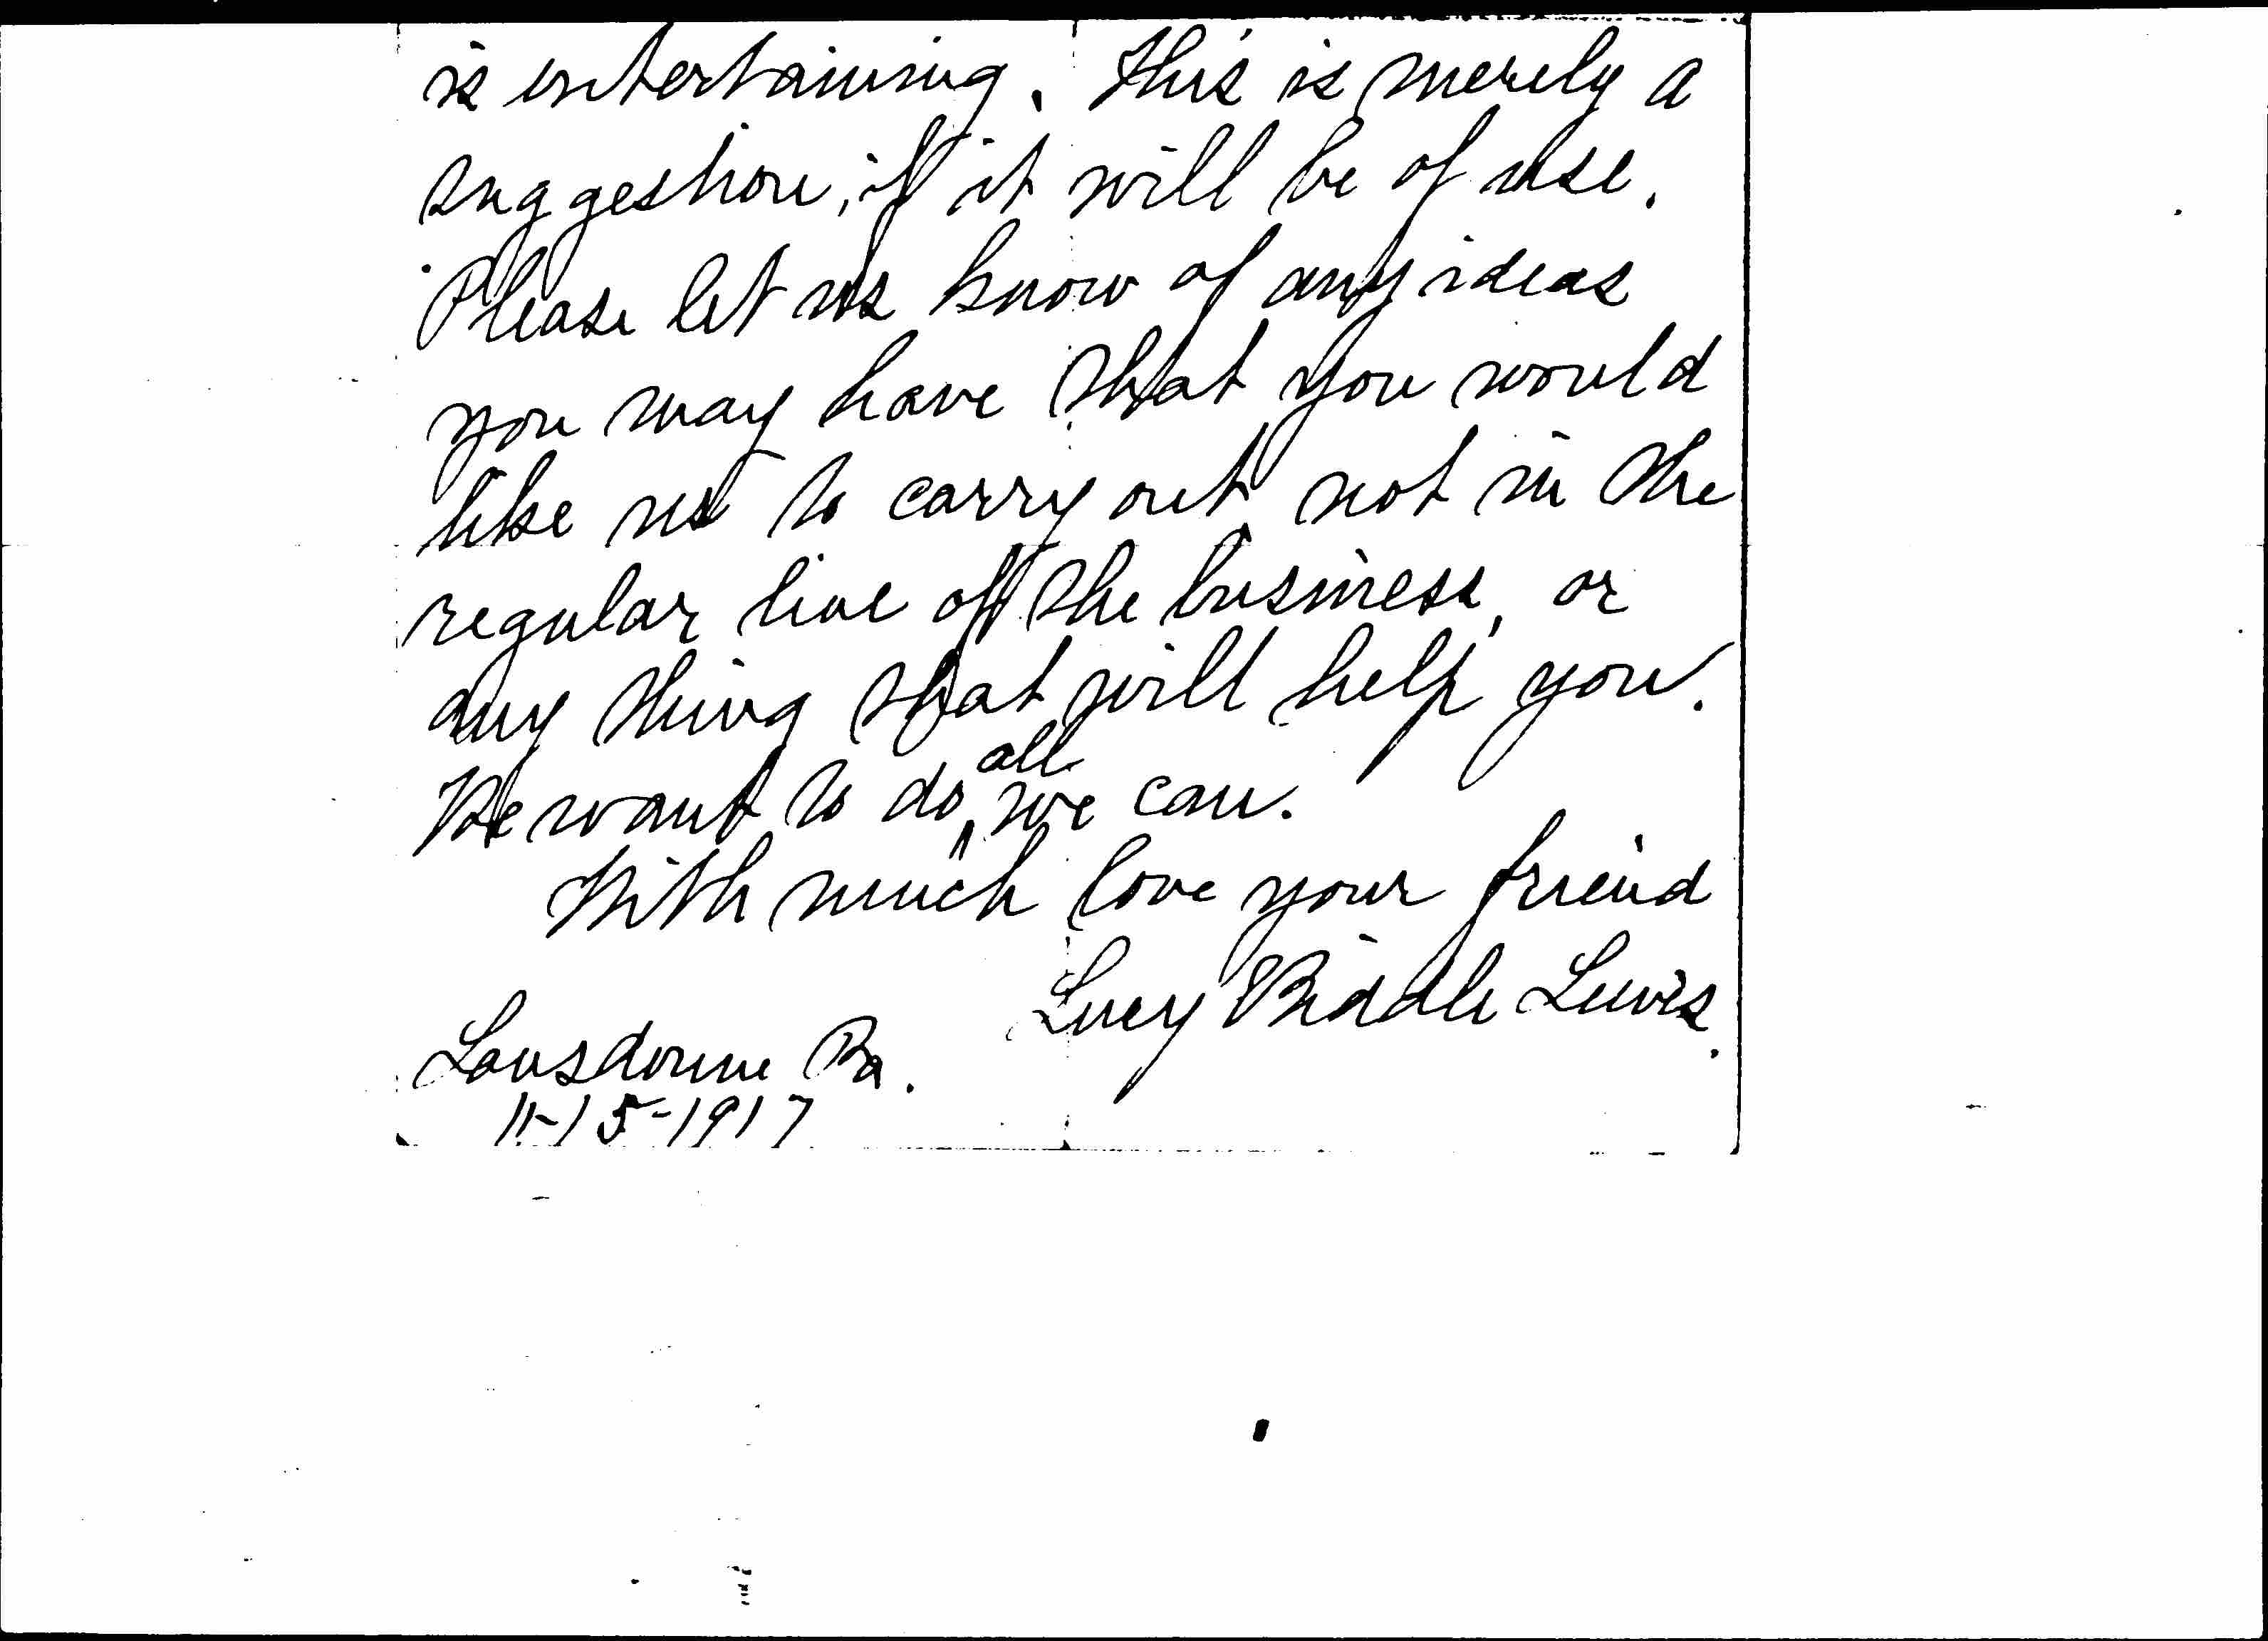 is entertaining. This is merely a
suggestion, if it will be of use.
Please let us know of any ideas
you may have that you would
like us to carry out not in the
regular line of the business, or
any thing that will help you.
We want to do all we can.
With much love your friend
Lucy Biddle Lewis.
Lansdowne Pa.
11-15-1917